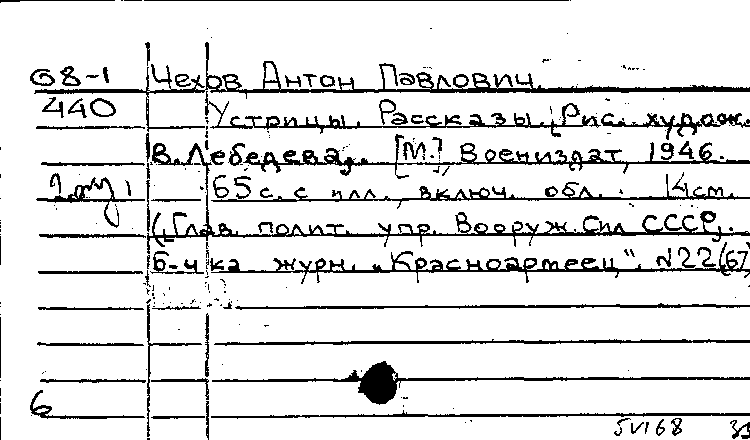 G8-1 Чехов Антон Павлович.
440 Устрицы. Рассказы. [Рис. худож.
В. Лебедева]. [М.], Воениздат, 1946.
65 с. с илл., включ. обл. 14 см.
(Глав. полит. упр. Вооруж. Сил СССР.
Б-чка журн. „Красноармеец". №22(67)
6
5VI68